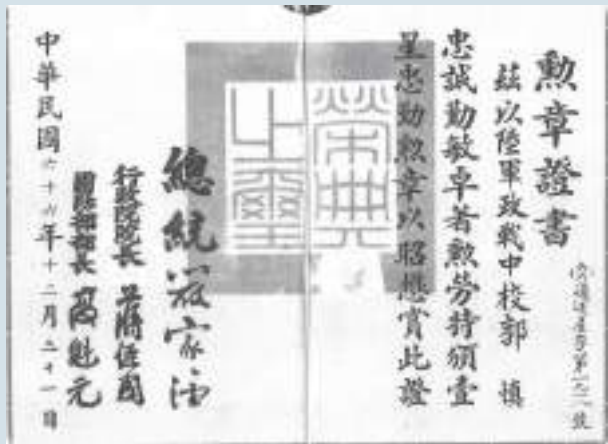 勲章證書
茲以陸軍政戰中校郭 慎
忠誠勤敏卓著勲勞特頒壹
星忠勤勲章以昭懋賞此證
榮典
之璽
總統嚴家淦
行政院院長 蔣經國
國防部部長 高魁元
中華民國六十六年十二月二十一日